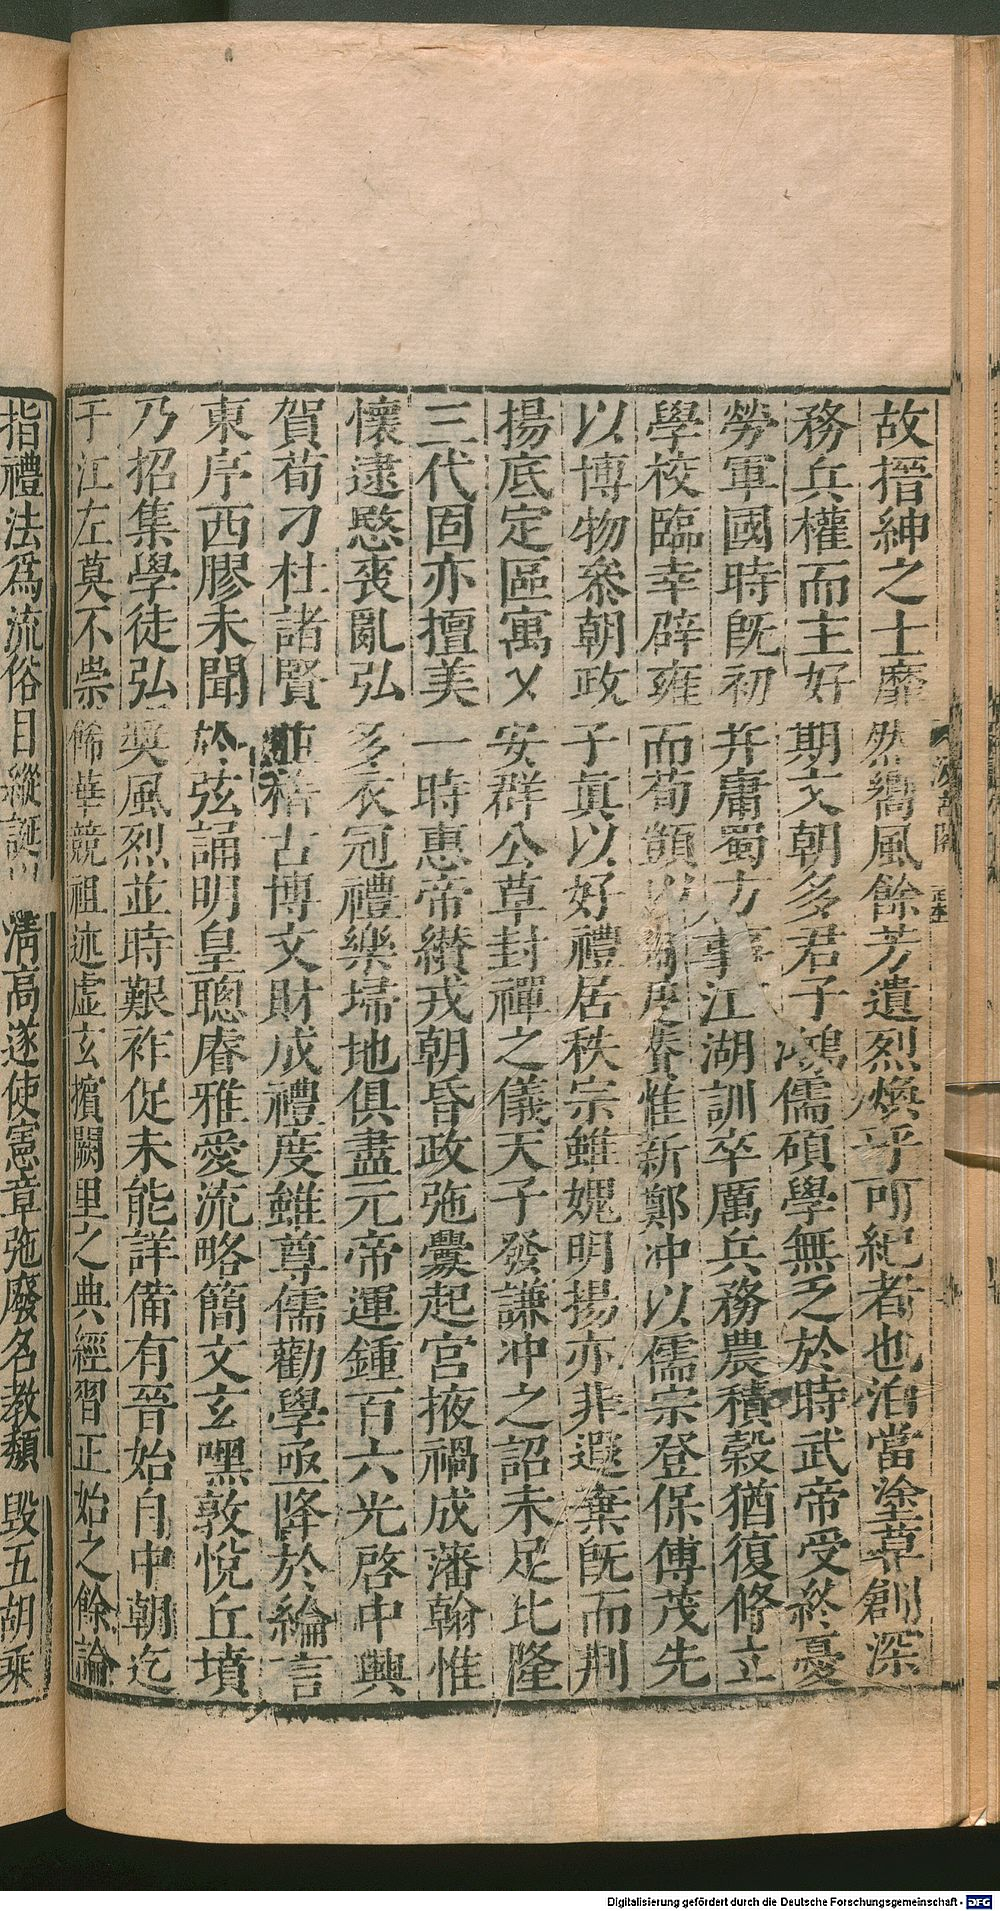 故搢紳之士靡然嚮風餘芳遺烈煥乎可紀者也洎當塗草創深
務兵權而主好期文朝多君子鴻儒碩學無乏於時武帝受終憂
勞軍國時既初并庸蜀方事江湖訓卒厲兵務農積穀猶復修立
學校臨幸辟雍而荀顗以制度惟新鄭沖以儒宗登保傅茂先
以博物參朝政子真以好禮居秩宗雖媿明揚亦非遐棄既而荆
揚底定區寓乂安群公草封禪之儀天子發謙冲之詔未足比隆
三代固亦擅美一時惠帝纘戎朝昏政弛釁起宮掖禍成藩翰惟
懷逮愍喪亂弘多衣冠禮樂埽地俱盡元帝運鍾百六光啓中興
賀荀刁杜諸賢並稽古博文財成禮度雖尊儒勸學亟降於綸言
東序西膠未聞於弦誦明皇聰睿雅愛流略簡文玄嘿敦悅丘墳
乃招集學徒弘奬風烈並時艱祚促未能詳備有晉始自中朝迄
于江左莫不崇飾華競祖述虛玄擯闕里之典經習正始之餘論
指禮法爲流俗目縱誕以清高遂使憲章弛廢名教頹毀五胡乘
Digitalisierung gefördert durch die Deutsche Forschungsgemeinschaft - DFG